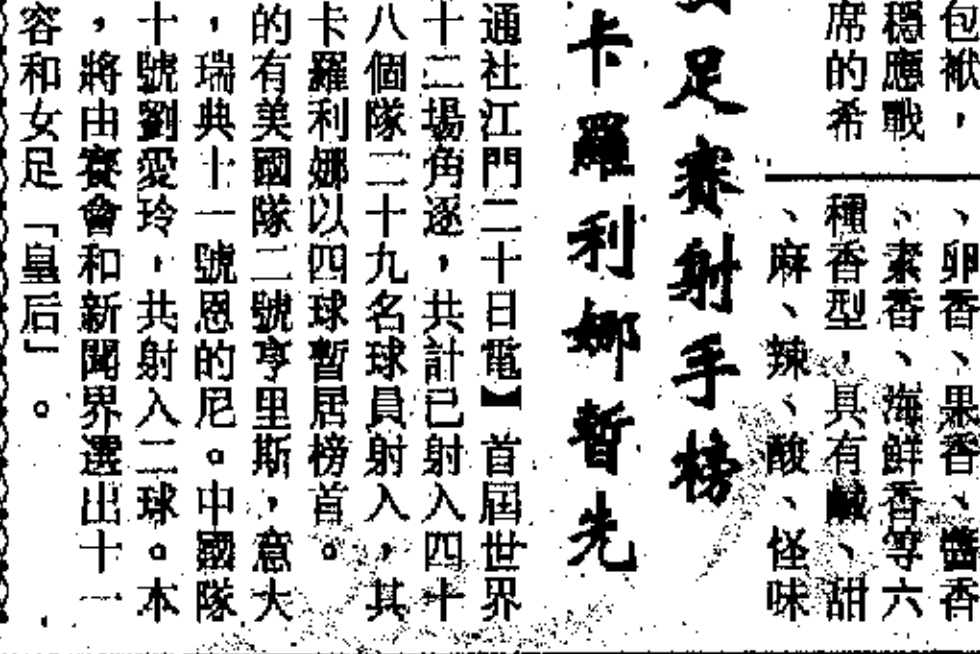 包袱，
穩應戰
席的希
、卵香、果香、醬香
、素香、海鮮香等六
種香型，具有鹹、甜
、麻、辣、酸、怪味
足賽射手榜
卡羅利娜暫先
通社江門二十日電】首屆世界
十二場角逐，共計已射入四十
八個隊二十九名球員射入，其
卡羅利娜以四球暫居榜首。
的有美國隊二號亨里斯，意大
，瑞典十一號恩的尼。中國隊
十號劉愛玲，共射入二球。本
，將由賽會和新聞界選出十一
容和女足「皇后」。